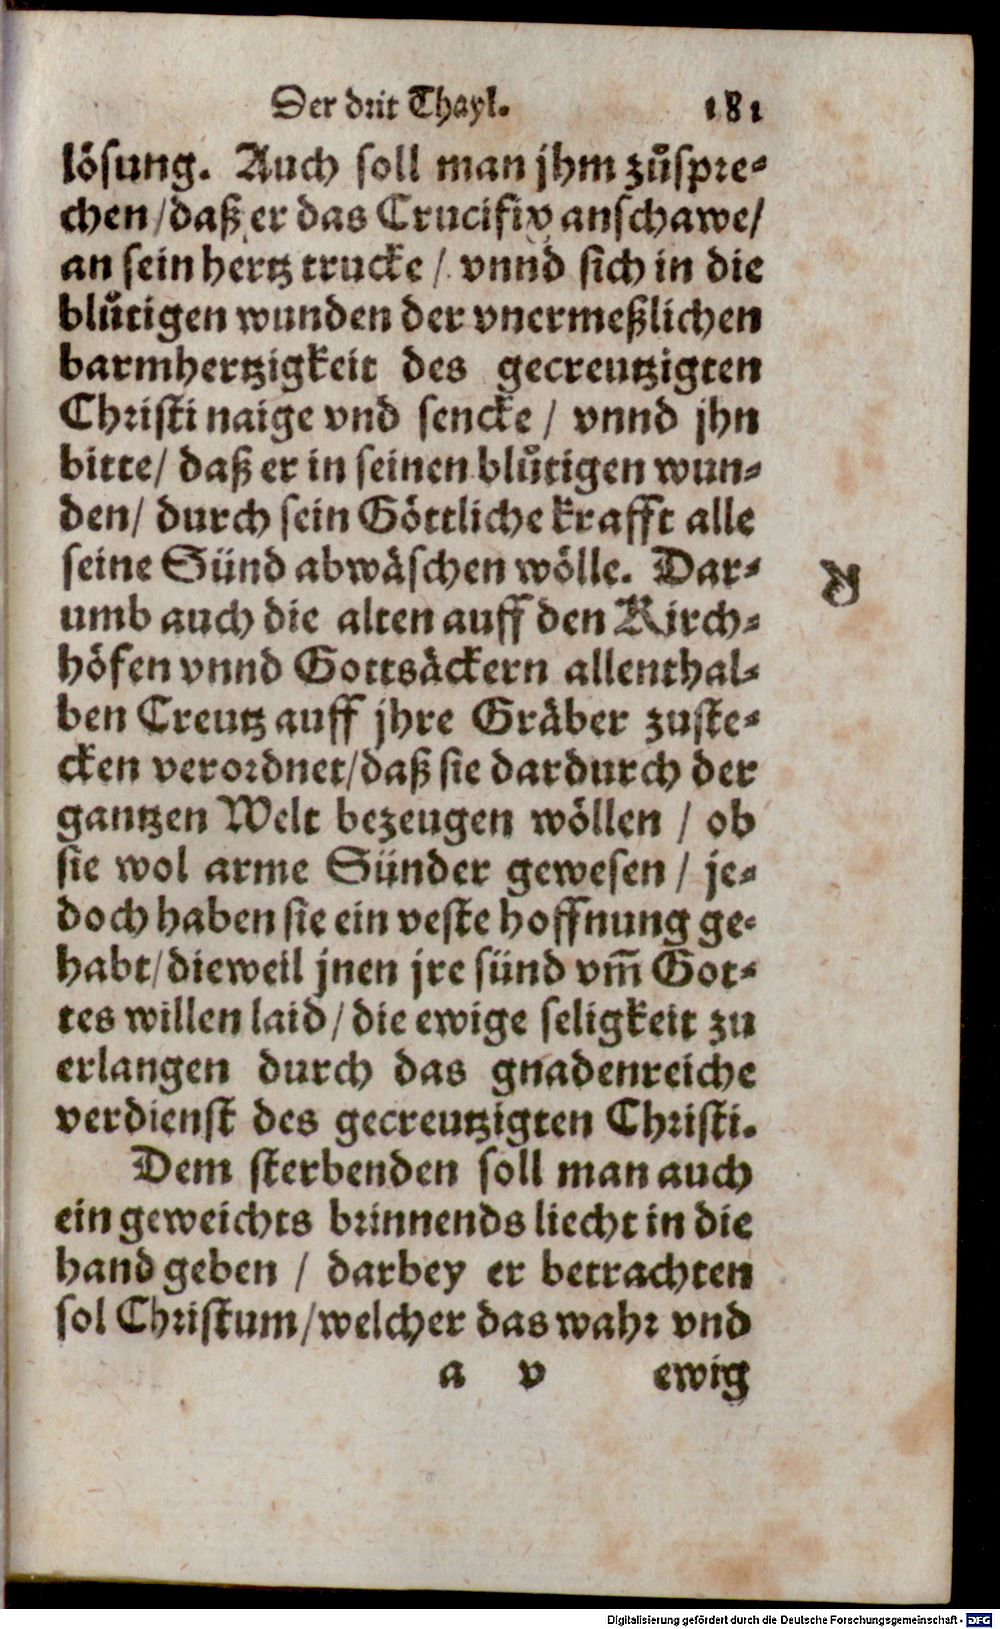 Der drit Thayl. 181
lösung. Auch soll man jhm zůspre⸗
chen/ daß er das Crucifix anschawe/
an sein hertz trucke / vnnd sich in die
blůtigen wunden der vnermeßlichen
barmhertzigkeit des gecreutzigten
Christi naige vnd sencke / vnnd jhn
bitte/ daß er in seinen blůtigen wun⸗
den/ durch sein Göttliche krafft alle
seine Sünd abwäschen wölle. Dar⸗
umb auch die alten auff den Kirch⸗
höfen vnnd Gottsäckern allenthal⸗
ben Creutz auff jhre Gräber zuste⸗
cken verordnet/ daß sie dardurch der
gantzen Welt bezeugen wöllen / ob
sie wol arme Sünder gewesen / je⸗
doch haben sie ein veste hoffnung ge⸗
habt/ dieweil jnen jre sünd vm̃ Got⸗
tes willen laid/ die ewige seligkeit zu
erlangen durch das gnadenreiche
verdienst des gecreutzigten Christi.
Dem sterbenden soll man auch
ein geweichts brinnends liecht in die
hand geben / darbey er betrachten
sol Christum/ welcher das wahr vnd
a v ewig
Digitalisierung gefördert durch die Deutsche Forschungsgemeinschaft - DFG